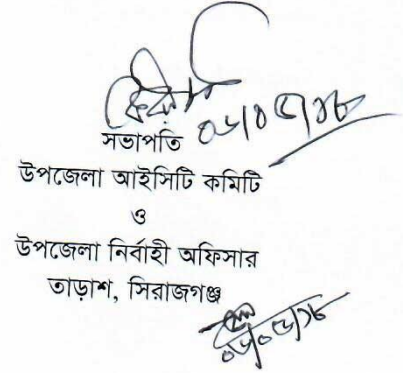 সভাপতি
উপজেলা আইসিটি কমিটি
ও
উপজেলা নির্বাহী অফিসার
তাড়াশ, সিরাজগঞ্জ